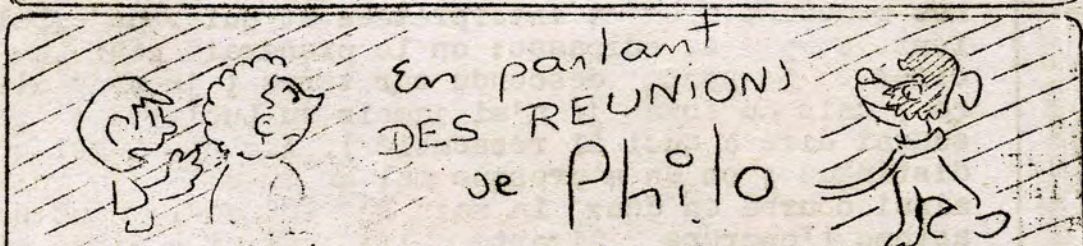 En parlant
DES REUNIONS
de Philo